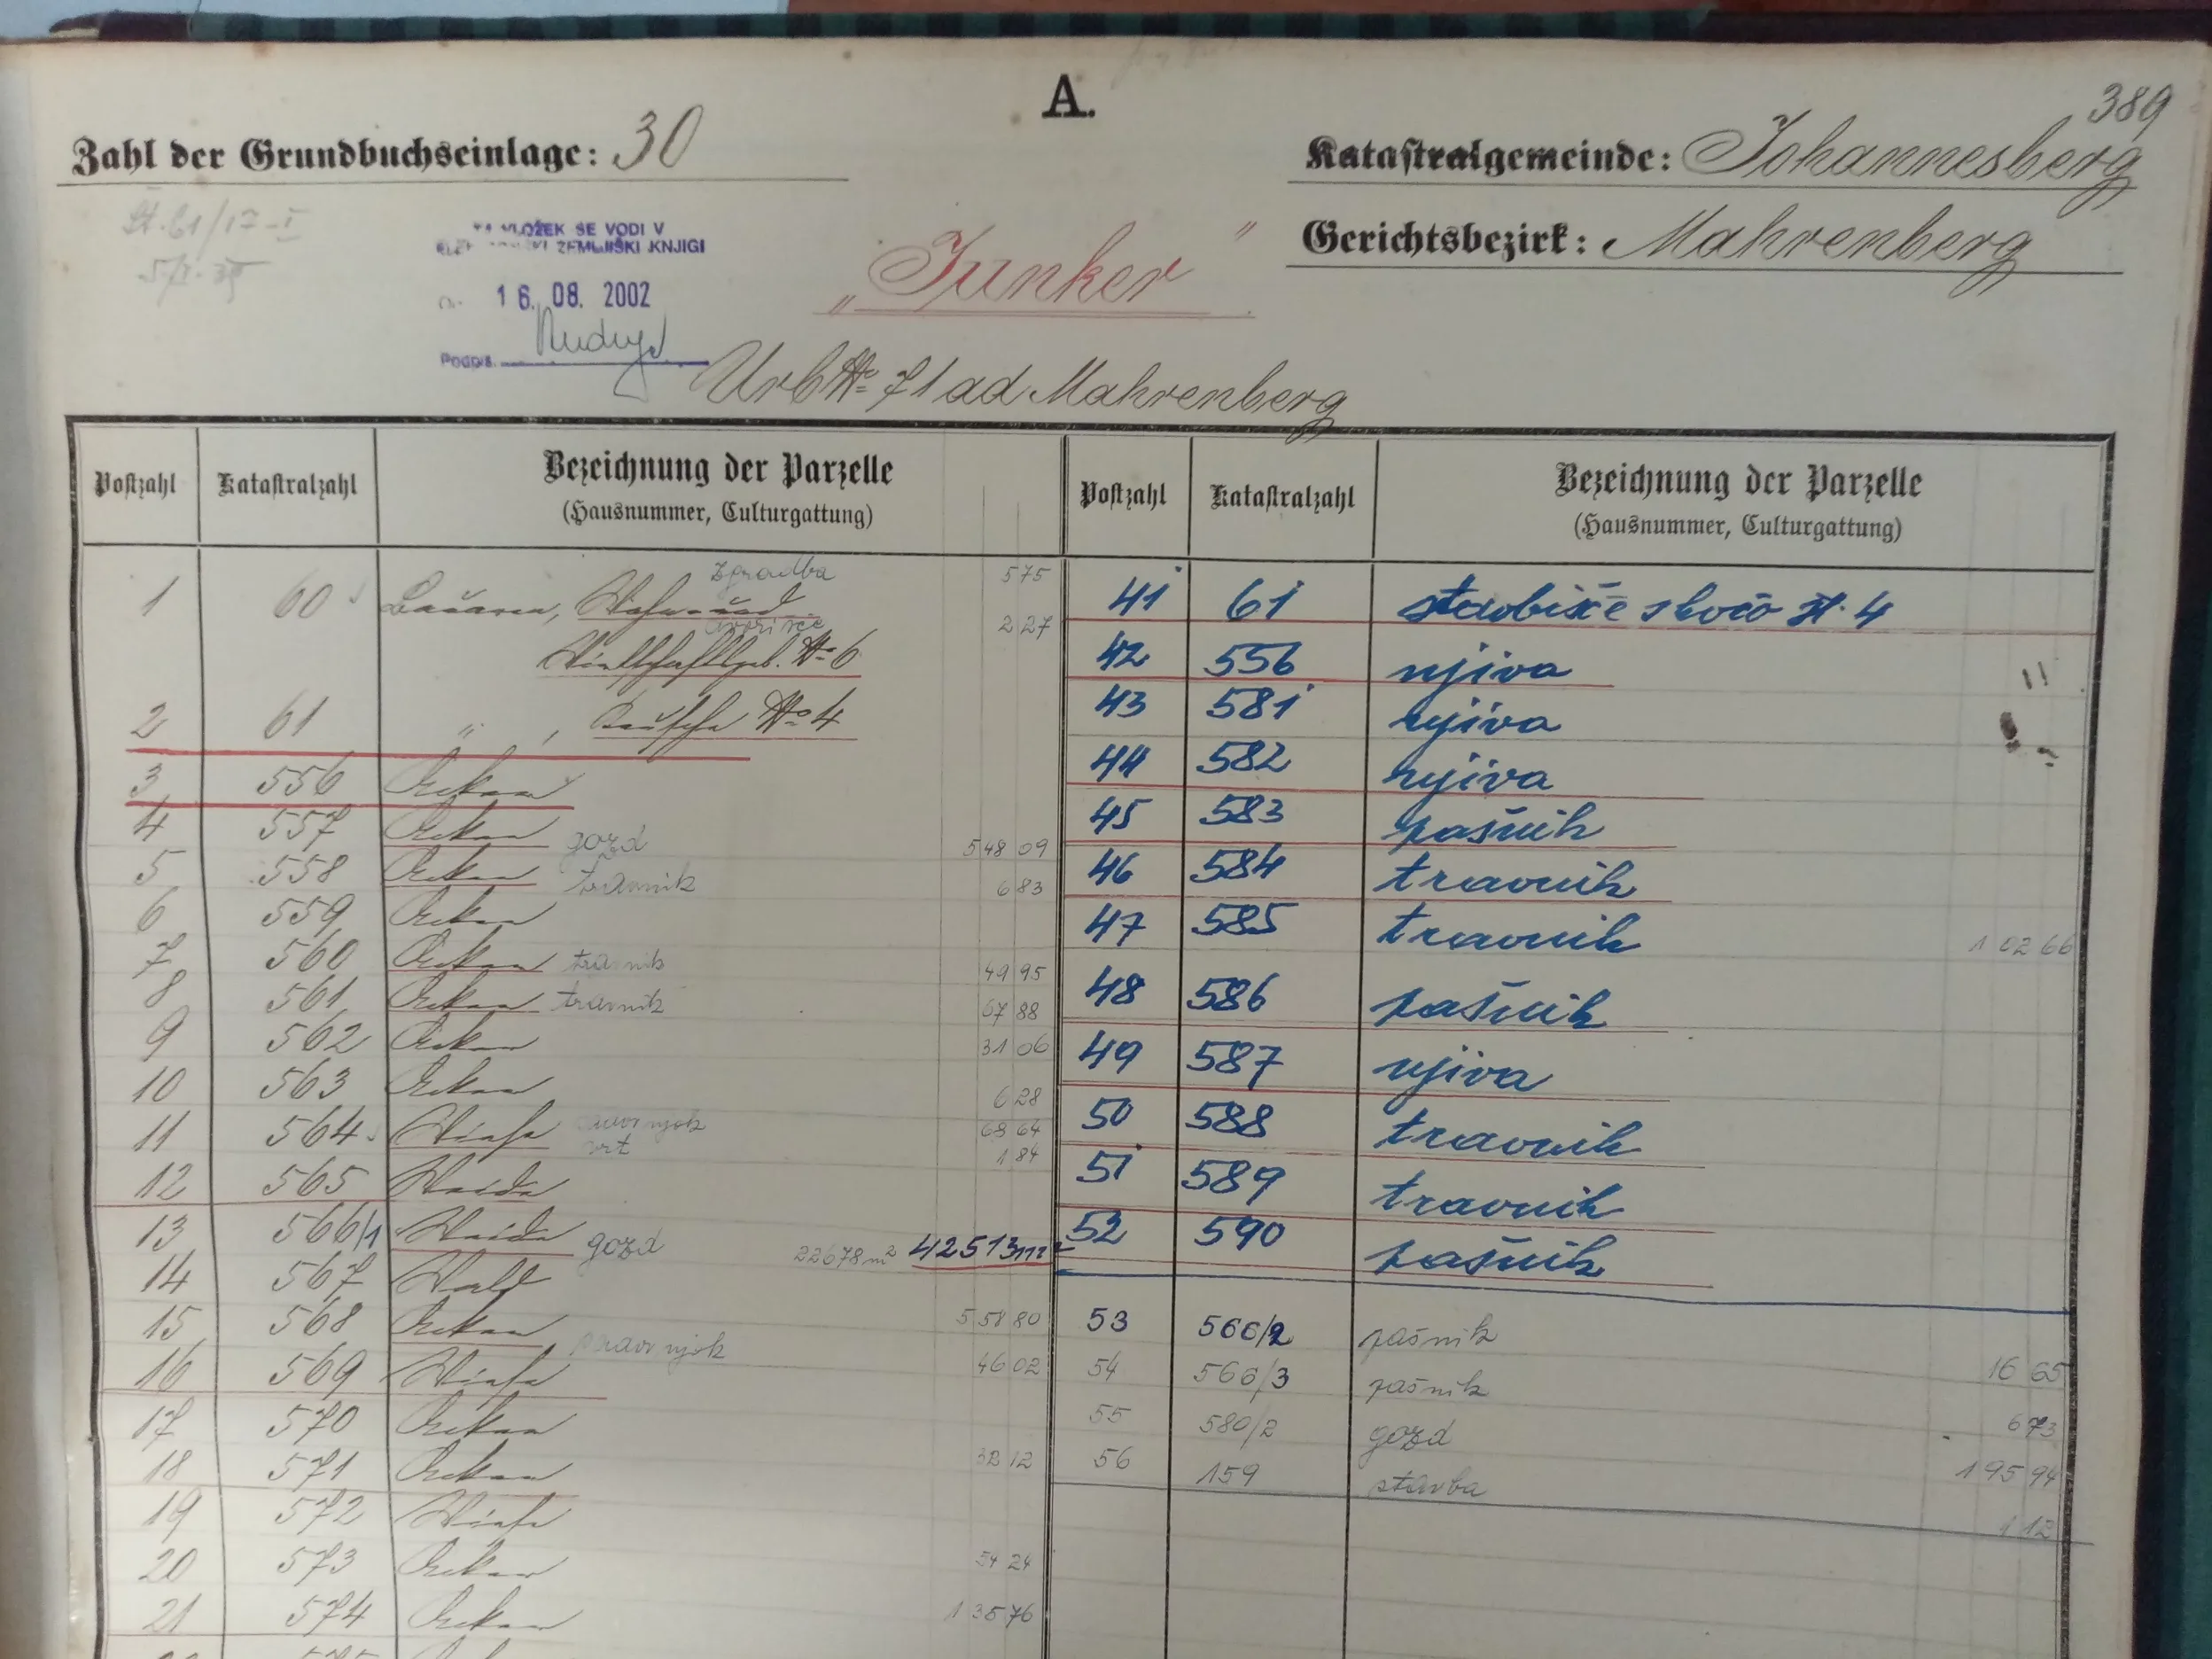 A.
389
Zahl der Grundbuchseinlage: 30
Katastralgemeinde: Johannesberg
Gerichtsbezirk: Mahrenberg
St. 61/17-I
VLOŽEK SE VODI V
ZEMLJIŠKI KNJIGI
16. 08. 2002
Podpis
„Junker"
Urb № 71 ad Mahrenberg
Postzahl Katastralzahl Bezeichnung der Parzelle
(Hausnummer, Culturgattung)
zgradba 575
1 60 Bauarea, Wohn- und
dvorišče 227
Wirtschaftsgeb. № 6
2 61 " , Keusche № 4
3 556 Acker
4 557 Acker gozd 548 09
5 558 Acker travnik 6 83
6 559 Acker
7 560 Acker travnik 49 95
8 561 Acker travnik 67 88
9 562 Acker 31 06
10 563 Acker 6 28
11 564 Wiese 68 64
vrt 1 84
12 565 Weide
13 566/1 Weide gozd 22678 m² 42513 m²
14 567 Wald
15 568 Acker 5 58 80
16 569 Wiese 46 02
17 570 Acker
18 571 Acker 32 12
19 572 Wiese
20 573 Acker 54 24
21 574 Acker 1 35 76
Postzahl Katastralzahl Bezeichnung der Parzelle
(Hausnummer, Culturgattung)
41 61 stavbišče s kočo št. 4
42 556 njiva
43 581 njiva
44 582 njiva
45 583 pašnik
46 584 travnik
47 585 travnik 1 02 66
48 586 pašnik
49 587 njiva
50 588 travnik
51 589 travnik
52 590 pašnik
53 566/2 pašnik 16 65
54 566/3 pašnik 6 73
55 580/2 gozd 1 95 94
56 159 stavba 1 12